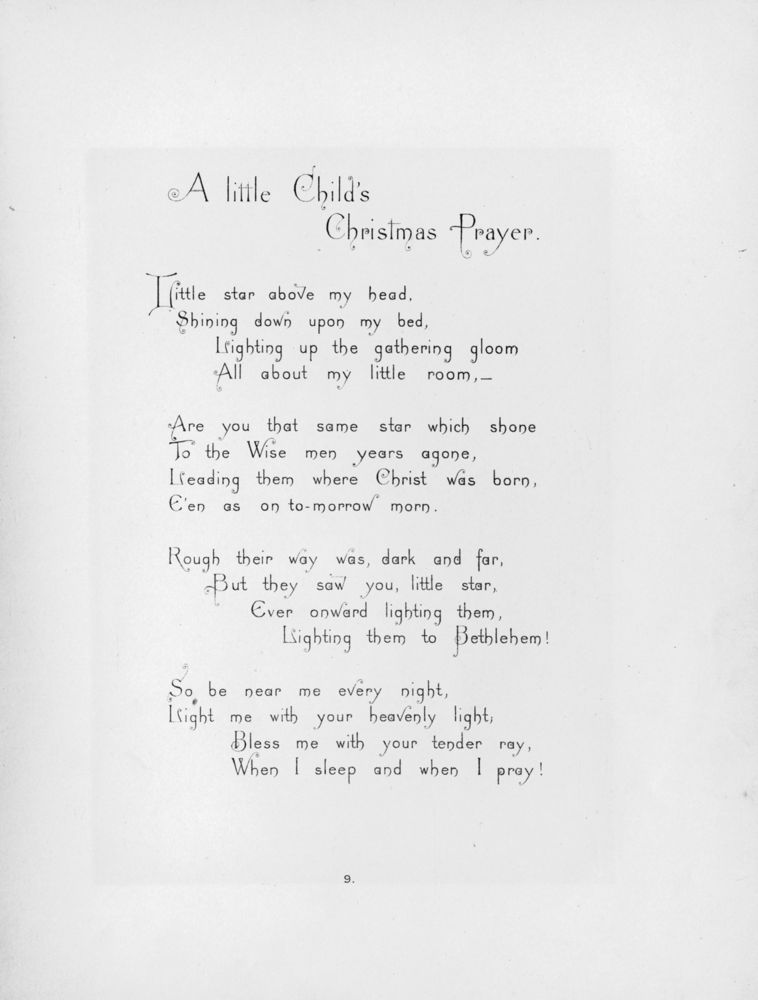 A little Child's
Christmas Prayer.
Little star above my head,
Shining down upon my bed,
Lighting up the gathering gloom
All about my little room,—
Are you that same star which shone
To the Wise men years agone,
Leading them where Christ was born,
E'en as on to-morrow morn.
Rough their way was, dark and far,
But they saw you, little star,
Ever onward lighting them,
Lighting them to Bethlehem!
So be near me every night,
Light me with your heavenly light;
Bless me with your tender ray,
When I sleep and when I pray!
9.